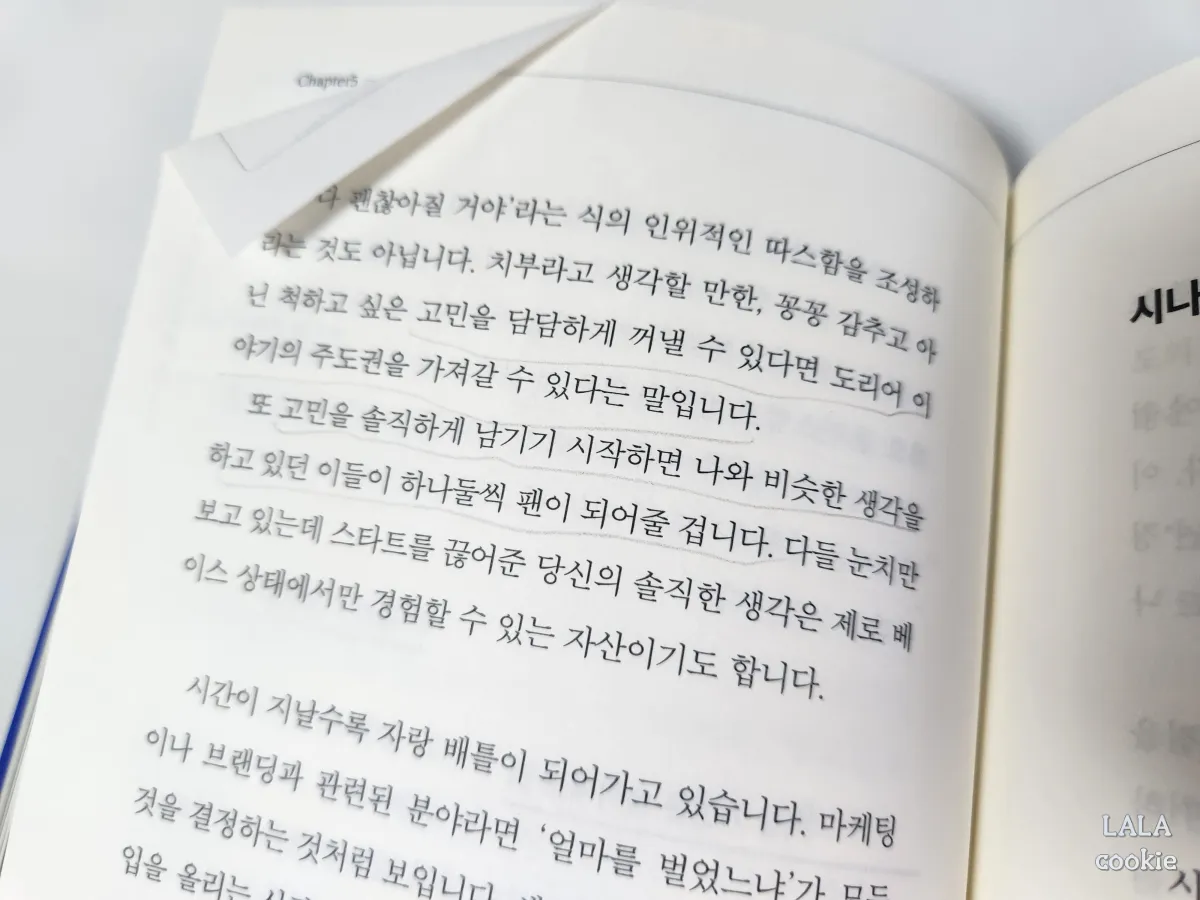 Chapter5
다 괜찮아질 거야’라는 식의 인위적인 따스함을 조성하
라는 것도 아닙니다. 치부라고 생각할 만한, 꽁꽁 감추고 아
닌 척하고 싶은 고민을 담담하게 꺼낼 수 있다면 도리어 이
야기의 주도권을 가져갈 수 있다는 말입니다.
또 고민을 솔직하게 남기기 시작하면 나와 비슷한 생각을
하고 있던 이들이 하나둘씩 팬이 되어줄 겁니다. 다들 눈치만
보고 있는데 스타트를 끊어준 당신의 솔직한 생각은 제로 베
이스 상태에서만 경험할 수 있는 자산이기도 합니다.
시간이 지날수록 자랑 배틀이 되어가고 있습니다. 마케팅
이나 브랜딩과 관련된 분야라면 ‘얼마를 벌었느냐’가 모든
것을 결정하는 것처럼 보입니다.
입을 올리는
시나
LALA
cookie